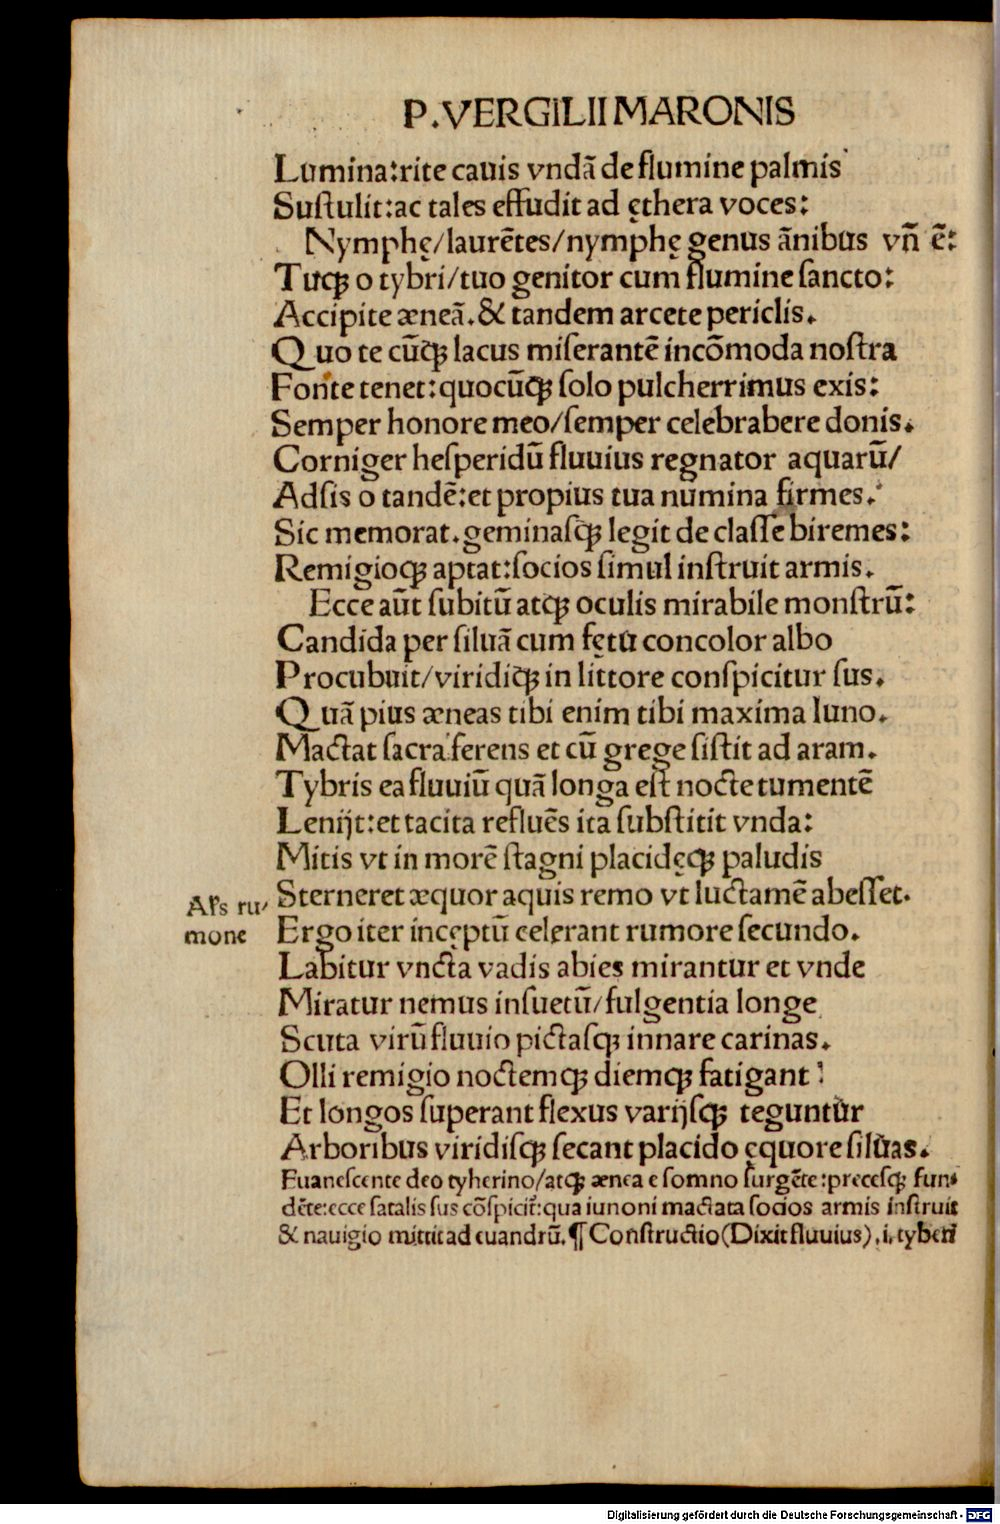 P. VERGILII MARONIS
Lumina:rite cauis vndã de flumine palmis
Suſtulit:ac tales effudit ad ęthera voces:
Nymphę/laurẽtes/nymphę genus ãnibus vñ ẽ:
Tuqꝫ o tybri/tuo genitor cum flumine ſancto:
Accipite æneã.& tandem arcete periclis.
Quo te cũqꝫ lacus miſerantẽ incõmoda noſtra
Fonte tenet:quocũqꝫ ſolo pulcherrimus exis:
Semper honore meo/ſemper celebrabere donis.
Corniger heſperidũ fluuius regnator aquarũ/
Adſis o tandẽ:et propius tua numina firmes.
Sic memorat.geminaſqꝫ legit de claſſe biremes:
Remigioqꝫ aptat:ſocios ſimul inſtruit armis.
Ecce aũt ſubitũ atqꝫ oculis mirabile monſtrũ:
Candida per ſiluã cum fętu concolor albo
Procubuit/viridiqꝫ in littore conſpicitur ſus.
Quã pius æneas tibi enim tibi maxima Iuno.
Mactat ſacra ferens et cũ grege ſiſtit ad aram.
Tybris ea fluuiũ quã longa eſt nocte tumentẽ
Lenijt:et tacita refluẽs ita ſubſtitit vnda:
Mitis vt in morẽ ſtagni placidęqꝫ paludis
Sterneret æquor aquis remo vt luctamẽ abeſſet.
Ergo iterincęptũ celerant rumore ſecundo.
Al's ru/
mone
Labitur vncta vadis abies mirantur et vnde
Miratur nemus inſuetũ/fulgentia longe
Scuta virũ fluuio pictaſqꝫ innare carinas.
Olli remigio noctemqꝫ diemqꝫ fatigant:
Et longos ſuperant flexus varijſqꝫ teguntur
Arboribus viridiſqꝫ ſecant placido ęquore ſiluas.
Euaneſcente deo tyherino/atqꝫ ænea e ſomno ſurgẽte:preceſqꝫ fun/
dẽte:ecce fatalis ſus cõſpicit̃:qua iunoni mactata ſocios armis inſtruit
& nauigio mittit ad euandrũ.¶ Conſtructio(Dixit fluuius).i.tyberi
Digitalisierung gefördert durch die Deutsche Forschungsgemeinschaft - DFG